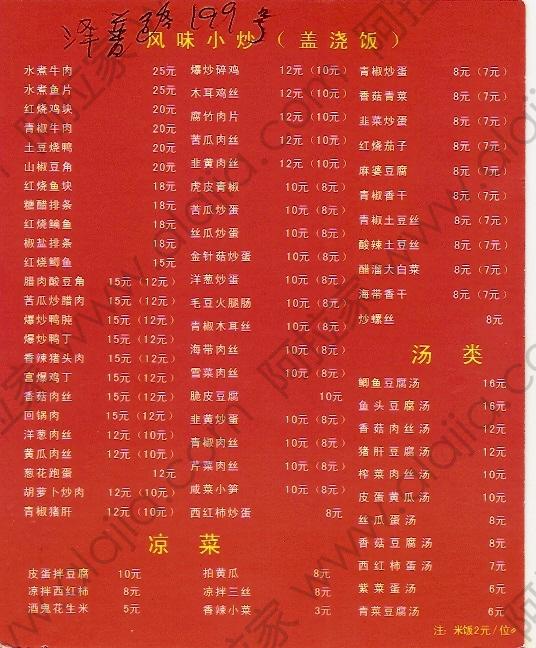 泽普路199号
风味小炒（盖浇饭）
水煮牛肉 25元
水煮鱼片 25元
红烧鸡块 20元
青椒牛肉 20元
土豆烧鸭 20元
山椒豆角 20元
红烧鱼块 18元
糖醋排条 18元
红烧鮰鱼 18元
椒盐排条 18元
红烧鲫鱼 15元
腊肉酸豆角 15元（12元）
苦瓜炒腊肉 15元（12元）
爆炒鸭肫 15元（12元）
爆炒鸭丁 15元（12元）
香辣猪头肉 15元（12元）
宫爆鸡丁 15元（12元）
香菇肉丝 15元（12元）
回锅肉 15元（12元）
洋葱肉丝 12元（10元）
黄瓜肉丝 12元（10元）
葱花跑蛋 12元
胡萝卜炒肉 12元（10元）
青椒猪肝 12元（10元）
爆炒碎鸡 12元（10元）
木耳鸡丝 12元（10元）
腐竹肉片 12元（10元）
苦瓜肉丝 12元（10元）
韭黄肉丝 12元（10元）
虎皮青椒 10元（8元）
苦瓜炒蛋 10元（8元）
丝瓜炒蛋 10元（8元）
金针菇炒蛋 10元（8元）
洋葱炒蛋 10元（8元）
毛豆火腿肠 10元（8元）
青椒木耳丝 10元（8元）
海带肉丝 10元（8元）
雪菜肉丝 10元（8元）
脆皮豆腐 10元
韭黄炒蛋 10元（8元）
青椒肉丝 10元（8元）
芹菜肉丝 10元（8元）
咸菜小笋 10元（8元）
西红柿炒蛋 8元
青椒炒蛋 8元（7元）
香菇青菜 8元（7元）
韭菜炒蛋 8元（7元）
红烧茄子 8元（7元）
麻婆豆腐 8元（7元）
青椒香干 8元（7元）
青椒土豆丝 8元（7元）
酸辣土豆丝 8元（7元）
醋溜大白菜 8元（7元）
海带香干 8元（7元）
炒螺丝 8元
汤 类
鲫鱼豆腐汤 16元
鱼头豆腐汤 16元
香菇肉丝汤 12元
猪肝豆腐汤 12元
榨菜肉丝汤 10元
皮蛋黄瓜汤 10元
丝瓜蛋汤 8元
香菇豆腐汤 8元
西红柿蛋汤 7元
紫菜蛋汤 6元
青菜豆腐汤 6元
凉 菜
皮蛋拌豆腐 10元
凉拌西红柿 8元
酒鬼花生米 5元
拍黄瓜 8元
凉拌三丝 8元
香辣小菜 3元
注：米饭2元/位
阿拉家 www.alajia.com